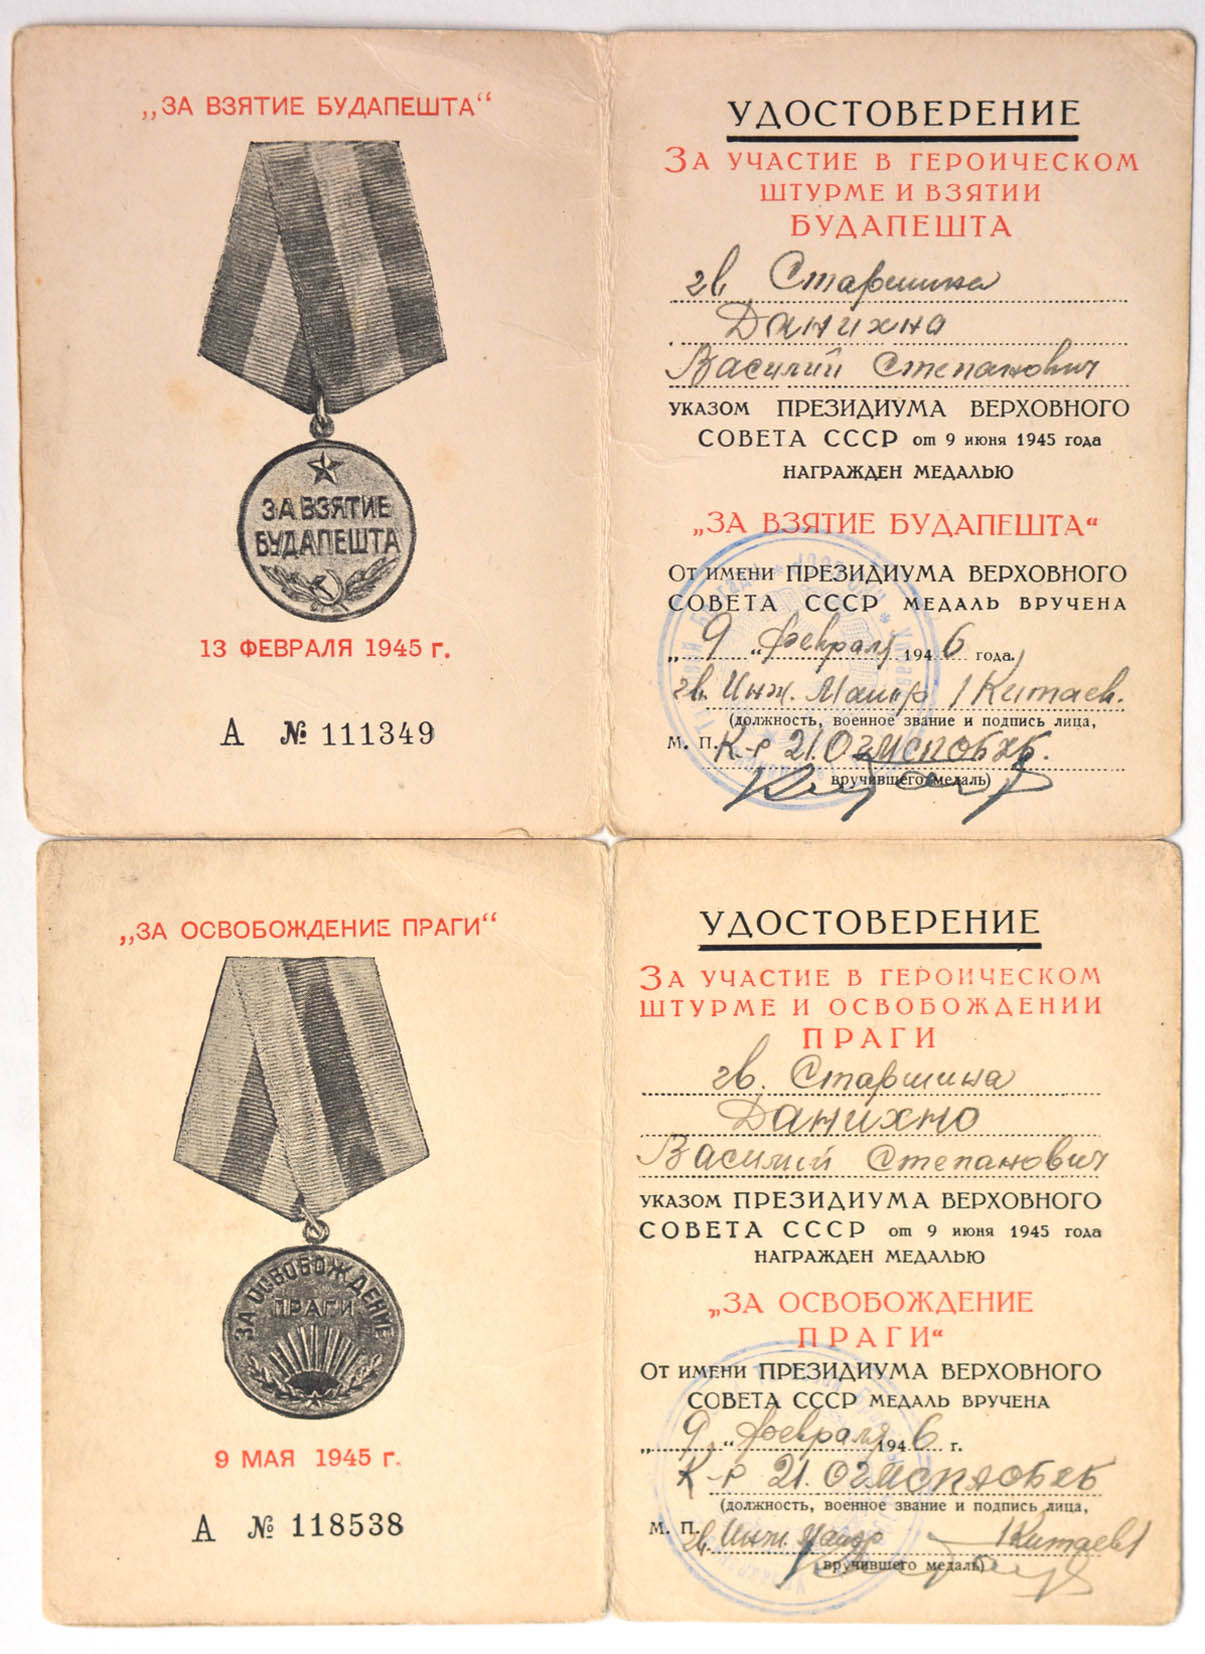 „ЗА ВЗЯТИЕ БУДАПЕШТА“
ЗА ВЗЯТИЕ
БУДАПЕШТА
13 ФЕВРАЛЯ 1945 г.
А № 111349
УДОСТОВЕРЕНИЕ
ЗА УЧАСТИЕ В ГЕРОИЧЕСКОМ
ШТУРМЕ И ВЗЯТИИ
БУДАПЕШТА
гв. Старшина
Данихно
Василий Степанович
УКАЗОМ ПРЕЗИДИУМА ВЕРХОВНОГО
СОВЕТА СССР от 9 июня 1945 года
НАГРАЖДЕН МЕДАЛЬЮ
„ЗА ВЗЯТИЕ БУДАПЕШТА“
ОТ ИМЕНИ ПРЕЗИДИУМА ВЕРХОВНОГО
СОВЕТА СССР МЕДАЛЬ ВРУЧЕНА
„9„ февраля 1946 года.
гв. Инж. Майор /Китаев.
(должность, военное звание и подпись лица,
М. П. К-р 21. ОГМСПОБХБ.
вручившего медаль)
„ЗА ОСВОБОЖДЕНИЕ ПРАГИ“
ЗА ОСВОБОЖДЕНИЕ
ПРАГИ
9 МАЯ 1945 г.
А № 118538
УДОСТОВЕРЕНИЕ
ЗА УЧАСТИЕ В ГЕРОИЧЕСКОМ
ШТУРМЕ И ОСВОБОЖДЕНИИ
ПРАГИ
гв. Старшина
Данихно
Василий Степанович
УКАЗОМ ПРЕЗИДИУМА ВЕРХОВНОГО
СОВЕТА СССР от 9 июня 1945 года
НАГРАЖДЕН МЕДАЛЬЮ
„ЗА ОСВОБОЖДЕНИЕ
ПРАГИ“
ОТ ИМЕНИ ПРЕЗИДИУМА ВЕРХОВНОГО
СОВЕТА СССР МЕДАЛЬ ВРУЧЕНА
„9„ февраля 1946 г.
К-р 21.
(должность, военное звание и подпись лица,
М. П. гв. Инж. Майор /Китаев/
вручившего медаль)